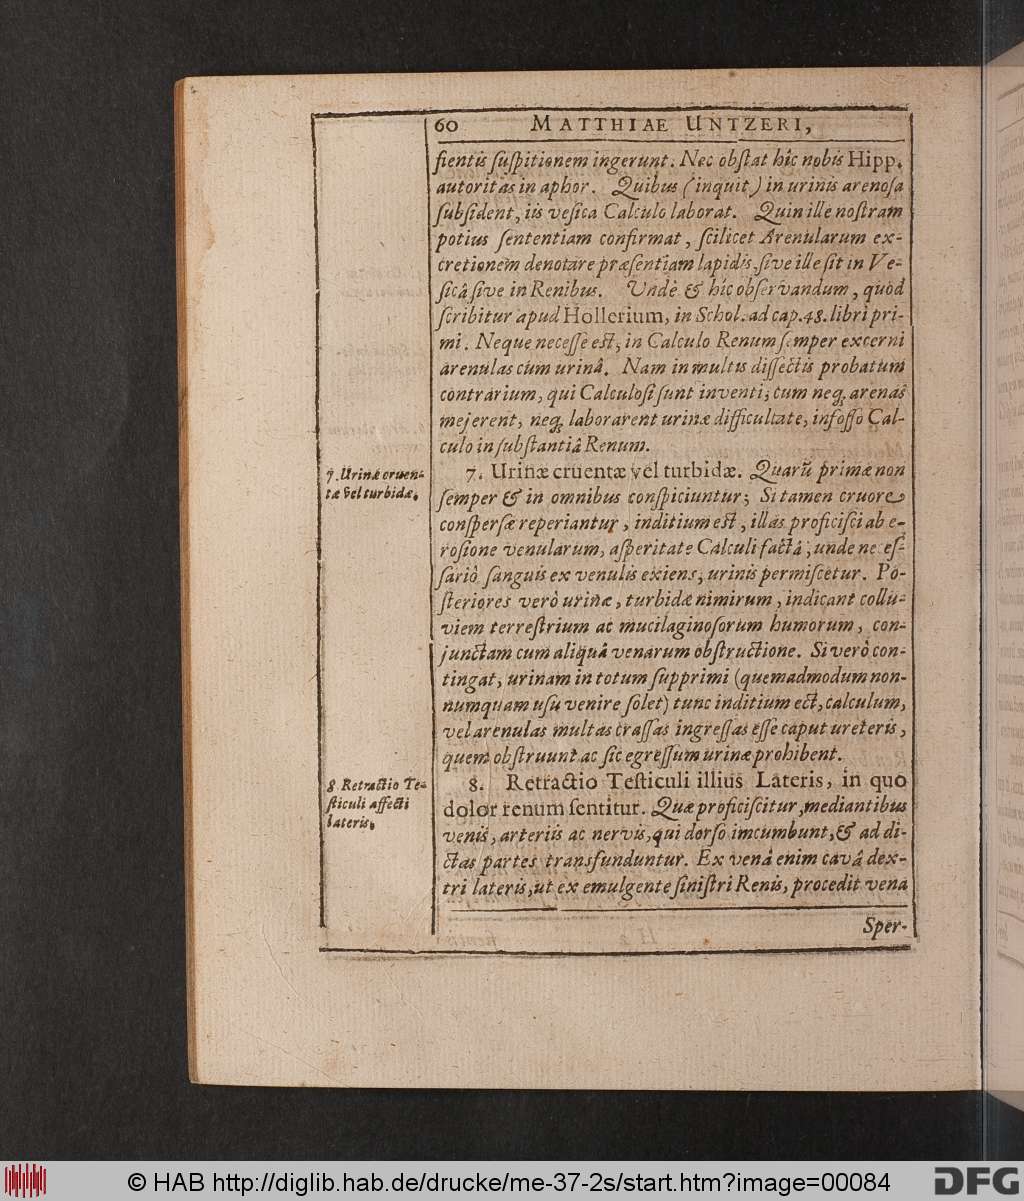 60 MATTHIAE UNTZERI,
ſientis ſuſpitionem ingerunt. Nec obſtat hîc nobis Hipp.
autoritas in aphor. Quibus (inquit) in urinis arenoſa
ſubſident, iis veſica Calculo laborat. Quin ille noſtram
potius ſententiam confirmat, ſcilicet Arenularum ex-
cretionem denotare præſentiam lapidis, ſive ille ſit in Ve-
ſicâ ſive in Renibus. Unde & hîc obſervandum, quod
ſcribitur apud Hollerium, in Schol. ad cap. 48. libri pri-
mi. Neque neceſſe eſt, in Calculo Renum ſemper excerni
arenulas cum urinâ. Nam in multis diſſectis probatum
contrarium, qui Calculoſi ſunt inventi, cum neq; arenas
mejerent, neq; laborarent urinæ difficultate, infoſſo Cal-
culo in ſubſtantiâ Renum.
7. Urinæ cruen-
tæ vel turbidæ.
7. Urinæ cruentæ vel turbidæ. Quarũ primæ non
ſemper & in omnibus conſpiciuntur; Si tamen cruore
conſperſæ reperiantur, inditium eſt, illas proficiſci ab e-
roſione venularum, aſperitate Calculi factâ, unde neceſ-
ſariò ſanguis ex venulis exiens, urinis permiſcetur. Po-
ſteriores verò urinæ, turbidæ nimirum, indicant collu-
viem terreſtrium ac mucilaginoſorum humorum, con-
junctam cum aliquâ venarum obſtructione. Si verò con-
tingat, urinam in totum ſupprimi (quemadmodum non-
numquam uſu venire ſolet) tunc inditium ect, calculum,
vel arenulas multas craſſas ingreſſas eſſe caput ureteris,
quem obſtruunt ac ſic egreſſum urinæ prohibent.
8. Retractio Te-
ſticuli affecti
lateris.
8. Retractio Teſticuli illius Lateris, in quo
dolor renum ſentitur. Quæ proficiſcitur, mediantibus
venis, arteriis ac nervis, qui dorſo imcumbunt, & ad di-
ctas partes transfunduntur. Ex venâ enim cavâ dex-
tri lateris, ut ex emulgente ſiniſtri Renis, procedit vena
Sper-
© HAB http://diglib.hab.de/drucke/me-37-2s/start.htm?image=00084
DFG